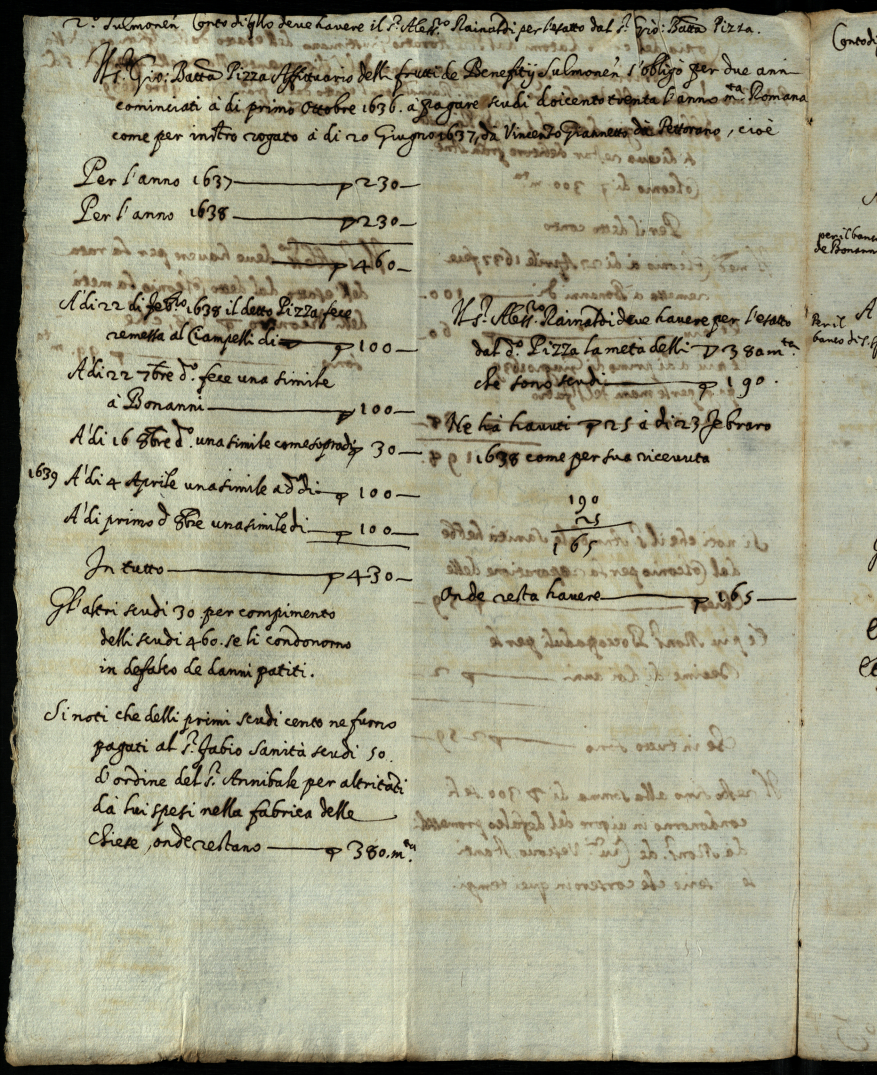 2.° Sulmonen. Conto di q̃llo deve havere il S.r Aless.ro Rainaldi per l'esatto dal S.r Gio: Batta Pizza.
Il S.r Gio: Batta Pizza Affittuario delli frutti de Benefitij Sulmonen s'obligò per due anni
cominciati à di primo Ottobre 1636. a pagare scudi doicento trenta l'anno m.ta Romana
come per instro rogato à di 20 Giugno 1637, da Vincenzo Giannetto da Pettorano, cioè
Per l'anno 1637 ▽ 230
Per l'anno 1638 ▽ 230
▽ 460
A di 22 di Feb.ro 1638 il detto Pizza fece
remessa al Ciampelli di ▽ 100
A di 22 7bre d.° fece una simile
à Bonanni ▽ 100
A di 16 8bre d.° una simile come sopra di ▽ 30
1639 A di 4 Aprile una simile ad di ▽ 100
A di primo d 8bre una simile di ▽ 100
In tutto ▽ 430
Gl'altri scudi 30 per compimento
delli scudi 460. se li condonorno
in defalco de danni patiti.
Si noti che delli primi scudi cento ne furno
pagati al S.r Fabio Sanità scudi 50.
d'ordine del S.r Annibale per altritanti
da lui spesi nella fabrica delle
Chiese, onde restano ▽ 380. m.ta
Il S.r Aless.ro Rainaldi deve havere per l'esatto
dal d.° Pizza la metà delli ▽ 380 m.ta
che sono scudi ▽ 190.
Ne hà havuti ▽ 25 à di 23 Febraro
1638 come per sua ricevuta
190
25
165
Onde resta havere ▽ 165
Conto di
per il banco
de Bonanni
A
Per il
banco di